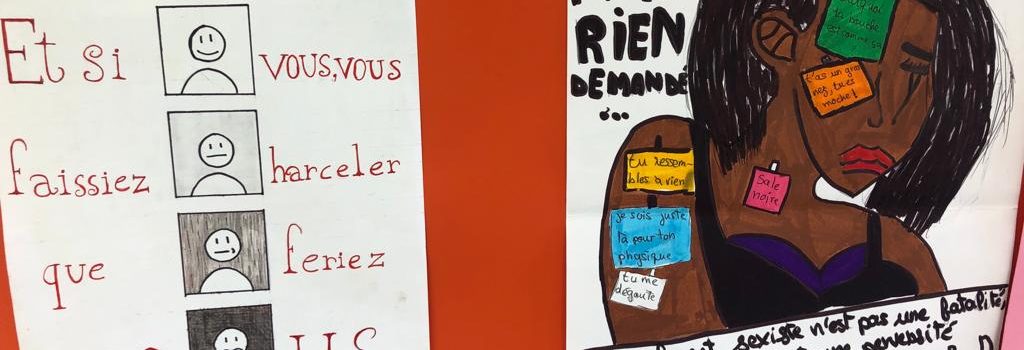 Et si vous, vous
faissiez harceler
que feriez
RIEN
DEMANDÉ
...
ta bouche
t'as un gros
nez, tu es
moche!
tu ressem-
bles à rien
Sale
noire
je suis juste
là pour ton
physique
tu me
dégoute
sexiste n'est pas une fatalité,